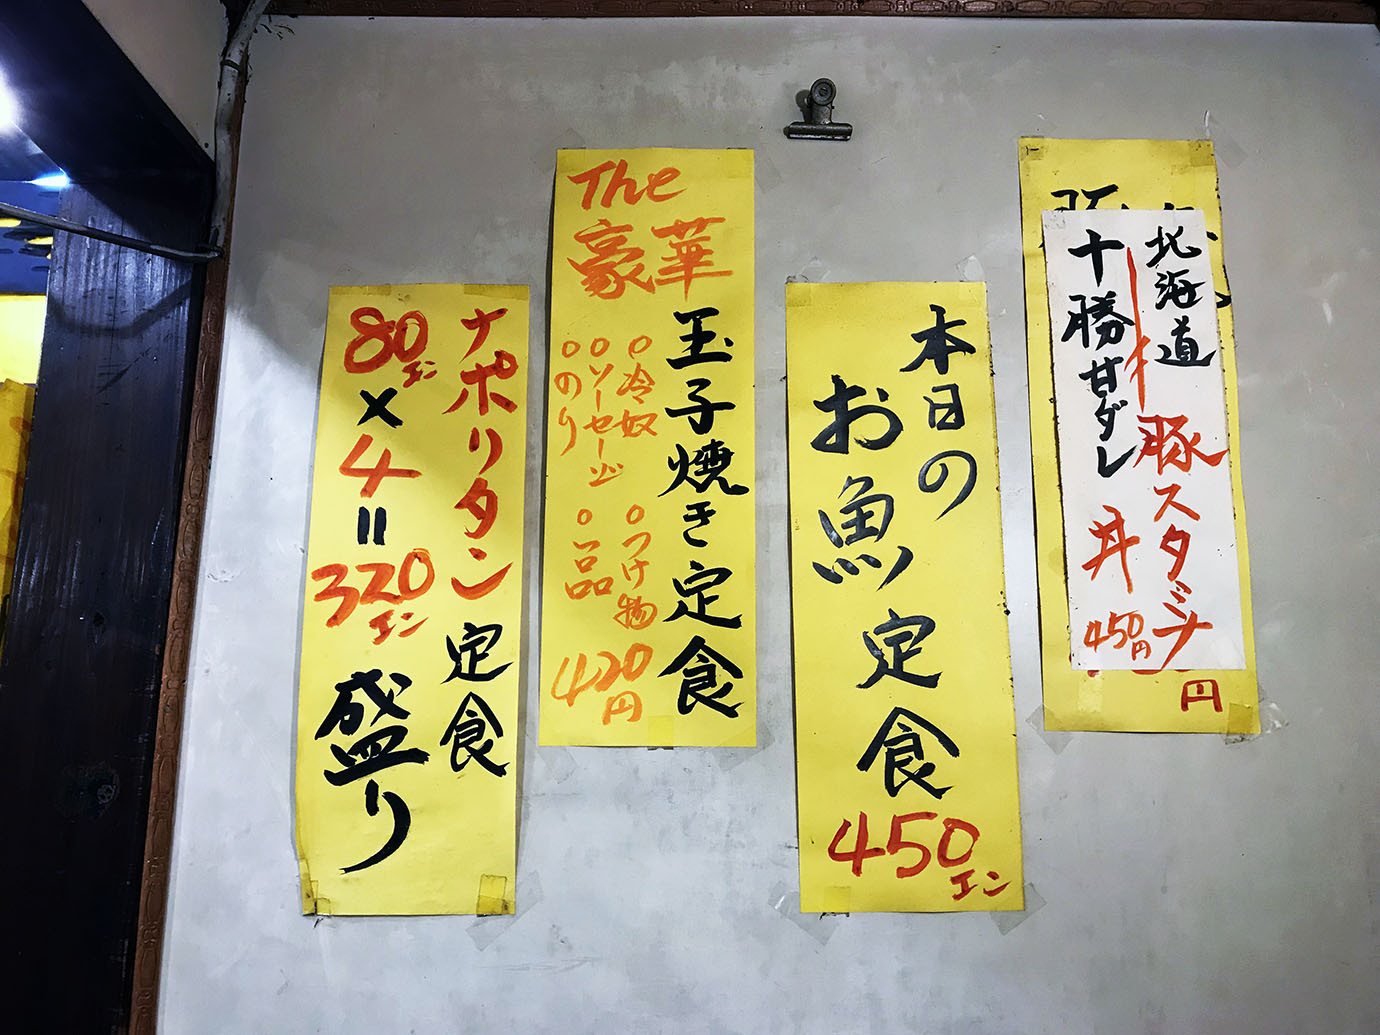 ナポリタン定食
80エン×4=320エン
盛り
The
豪華
玉子焼き定食
○冷奴 ○つけ物
○ソーセージ ○一品
○のり
420円
本日の
お魚定食
450エン
北海道
豚スタミナ
十勝甘ダレ
丼
450円
豚
円